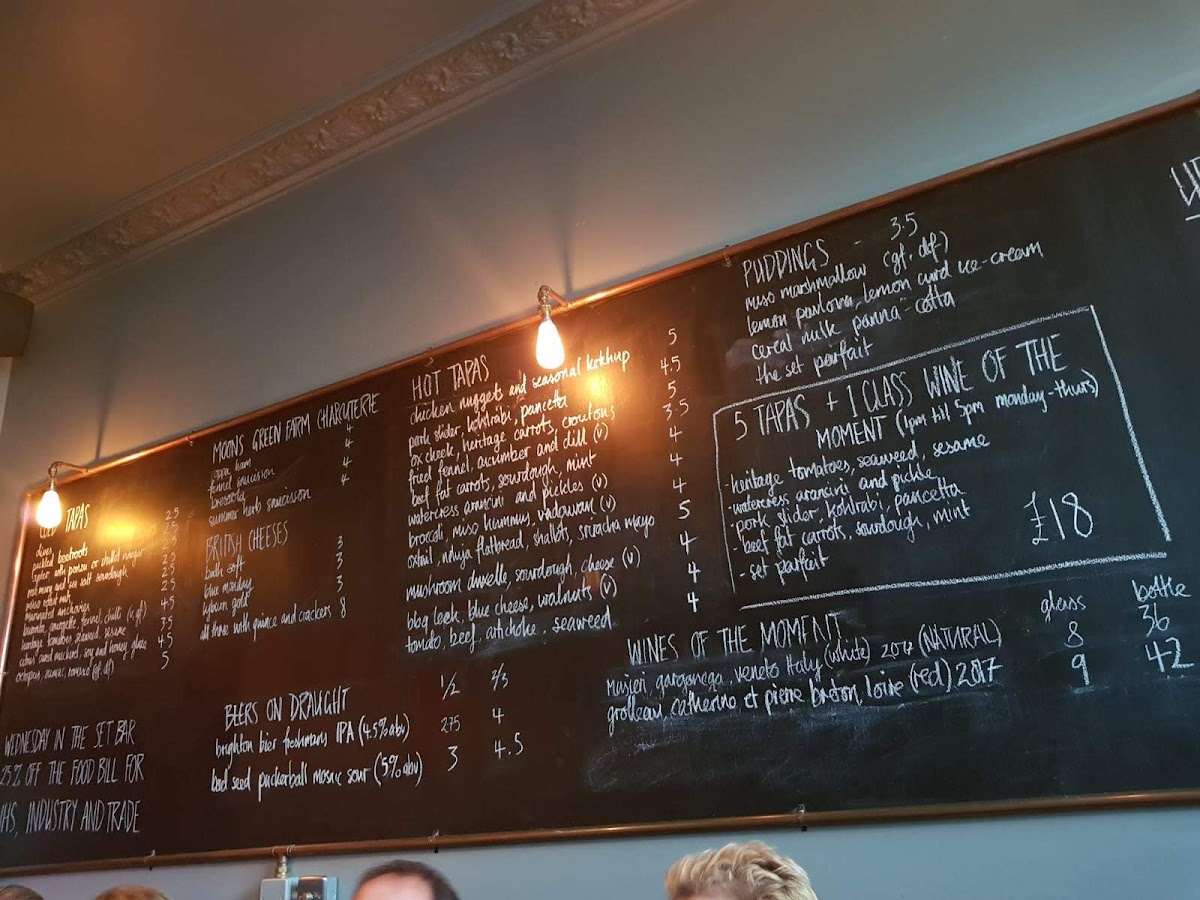 TAPAS
2.5
olives
pickled beetroots
sourdough
marinated anchovies
4.5
heritage tomatoes, seaweed, sesame
3.5
cured mackerel, soy and honey glaze
4.5
octopus,
5
WEDNESDAY IN THE SET BAR
25% OFF THE FOOD BILL FOR
NHS, INDUSTRY AND TRADE
MOONS GREEN FARM CHARCUTERIE
coppa ham 4
fennel saucission 4
bresaola 4
summer herb saucission 4
BRITISH CHEESES
bath soft 3
blue monday 3
lyburn gold 3
all three with quince and crackers 8
HOT TAPAS
chicken nuggets and seasonal ketchup 5
pork slider, kohlrabi, pancetta 4.5
ox cheek, heritage carrots, croutons 5
fried fennel, cucumber and dill (v) 3.5
beef fat carrots, sourdough, mint 4
watercress arancini and pickles (v) 4
broccoli, miso hummus, vadouvan (v) 4
oxtail, nduja flatbread, shallots, sriracha mayo 5
mushroom duxelle, sourdough, cheese (v) 4
bbq leek, blue cheese, walnuts (v) 4
tomato, beef, artichoke, seaweed 4
BEERS ON DRAUGHT 1/2 2/3
brighton bier freshmans IPA (4.5% abv) 2.75 4
bad seed puckerball mosaic sour (5% abv) 3 4.5
PUDDINGS - 3.5
miso marshmallow (gf, df)
lemon pavlova, lemon curd ice-cream
cereal milk panna-cotta
the set parfait
5 TAPAS + 1 GLASS WINE OF THE
MOMENT (1pm til 5pm monday-thurs)
- heritage tomatoes, seaweed, sesame
- watercress arancini and pickle
- pork slider, kohlrabi, pancetta
- beef fat carrots, sourdough, mint
- set parfait
£18
WINES OF THE MOMENT glass bottle
Masieri, garganega, veneto Italy (white) (NATURAL) 8 36
grolleau, catherine et pierre breton, loire (red) 2017 9 42